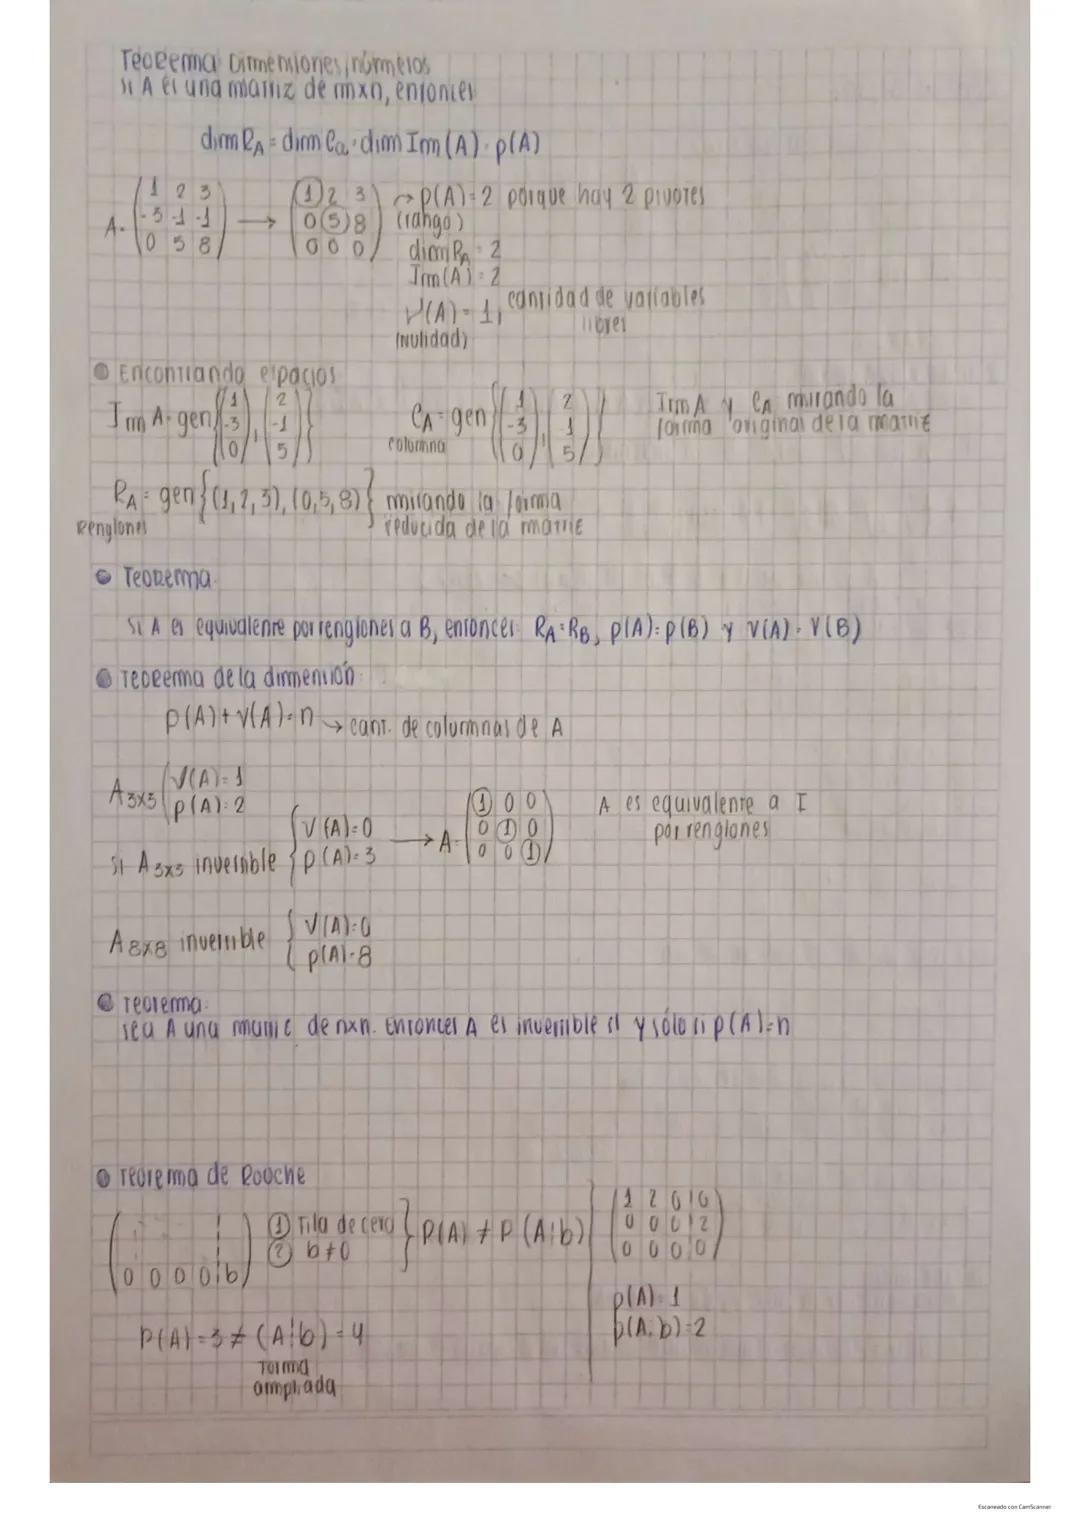 Teorema Dimensiones, números
si A es una matriz de mxn, entonces
dim RA = dim Ca = dim Im (A) = p(A)
A = (1 2 3 / -3 -1 -1 / 0 5 8) → (1 2 3 / 0 5 8 / 0 0 0) → p(A)=2 porque hay 2 pivotes
(rango)
dim RA = 2
Im(A) = 2
V(A) = 1, cantidad de variables libres
(Nulidad)
Encontrando espacios
Im A = gen{(1 -3 0), (2 -1 5)}
CA = gen{(1 -3 0), (2 1 5)}
columna
Im A y CA mirando la
forma original de la matriz
RA = gen{(1,2,3), (0,5,8)} mirando la forma
Renglones
reducida de la matriz
Teorema
Si A es equivalente por renglones a B, entonces RA=RB, p(A)=p(B) y V(A)=V(B)
Teorema de la dimensión:
p(A)+V(A)=n → cant. de columnas de A
A3x3 { V(A)=1
p(A)=2
Si A3x3 invertible { V(A)=0
p(A)=3
→ A = (1 0 0 / 0 1 0 / 0 0 1)
A es equivalente a I
por renglones
A8x8 invertible { V(A)=0
p(A)=8
Teorema:
sea A una matriz de nxn. Entonces A es invertible si y sólo si p(A)=n
Teorema de Rooche
(0 0 0 0 | b)
① Fila de cero
② b≠0
} P(A) ≠ P(A|b)
(1 2 0 | 0 / 0 0 0 | 2 / 0 0 0 | 0)
p(A)=1
p(A:b)=2
P(A)=3 ≠ (A|b)=4
Forma
ampliada
Escaneado con CamScanner